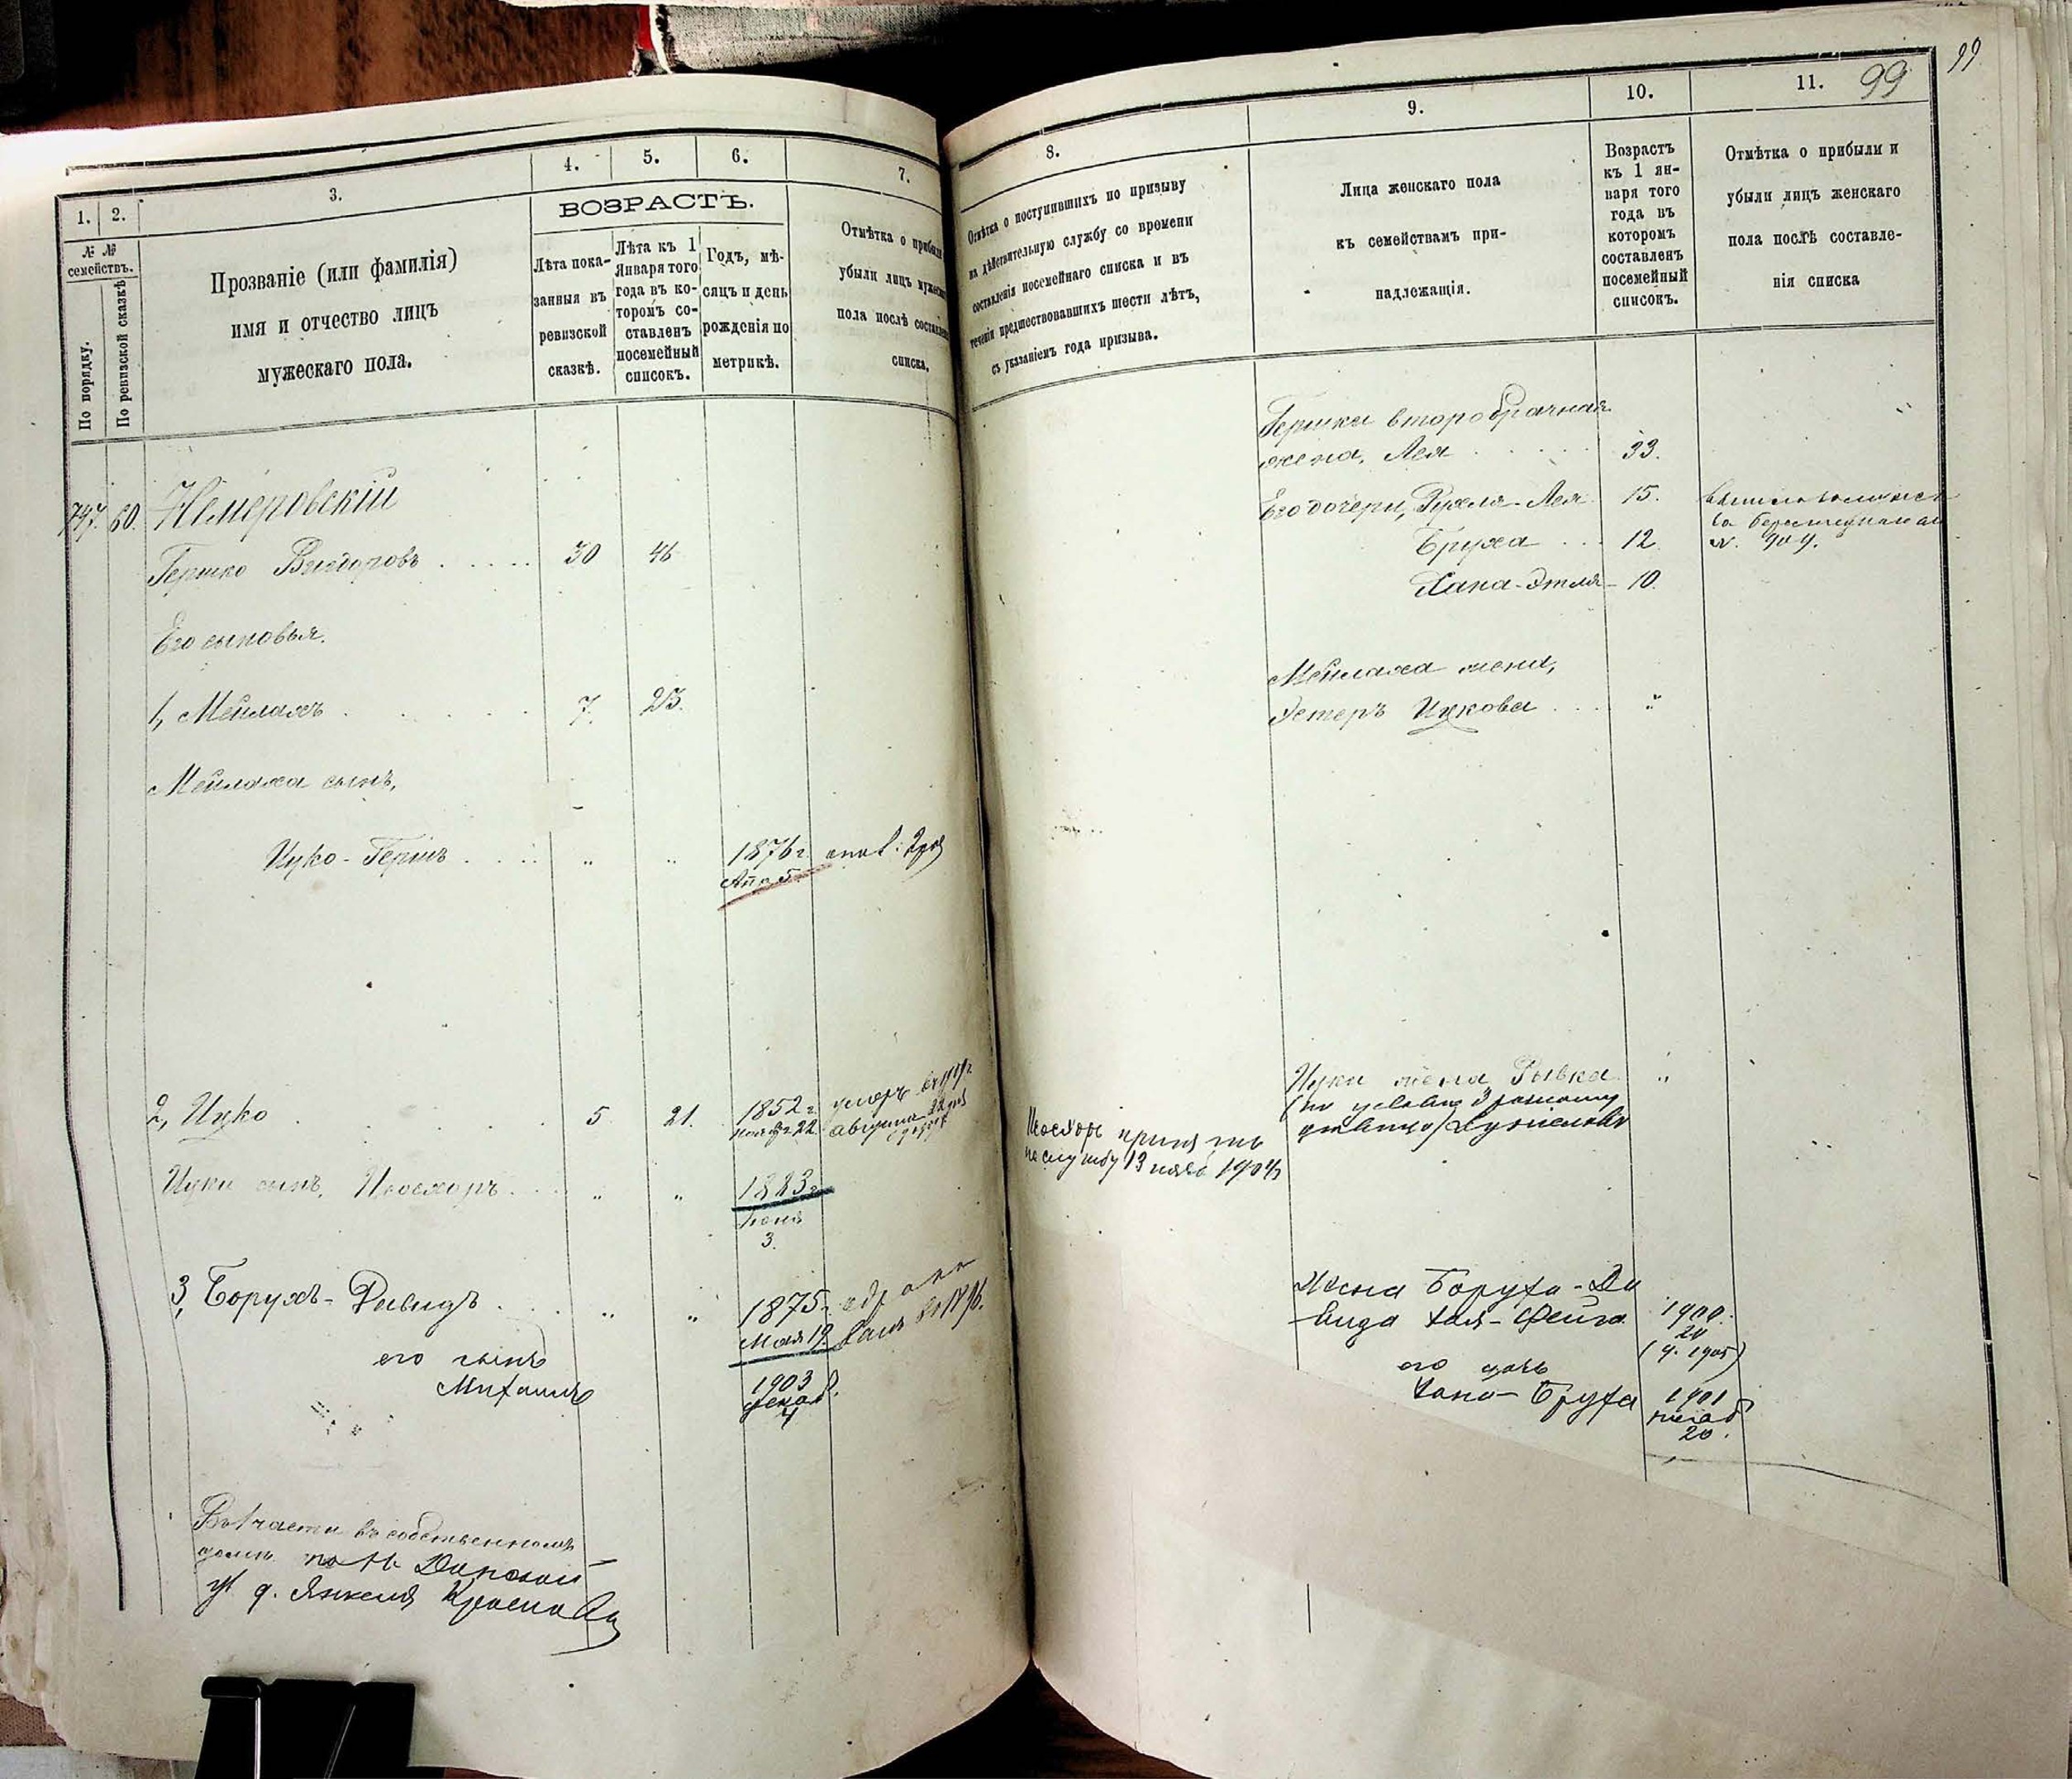 99
1.
2.
3.
4.
5.
6.
7.
№ №
семействъ.
По порядку.
По ревизской сказкѣ
Прозваніе (или фамилія)
имя и отчество лицъ
мужескаго пола.
ВОЗРАСТЪ.
Лѣта пока-
занныя въ
ревизской
сказкѣ.
Лѣта къ 1
Января того
года въ ко-
торомъ со-
ставленъ
посемейный
списокъ.
Годъ, мѣ-
сяцъ и день
рожденія по
метрикѣ.
Отмѣтка о прибыли
убыли лицъ мужеска
пола послѣ составлен
списка.
747. 60. Немеровскій
Гершко Вигдоровъ 30 46
Его сыновья.
1, Мейлахъ 7. 23.
Мейлаха сынъ,
Ицко-Гершъ " " 1876 г.
Апр. 5.
2, Ицко 5 21. 1852 г. умеръ
22. августа
Ицки сынъ, " " 1883 г.
Іюня
3.
3, Борухъ-Давидъ " " 1875 г.
Мая 19.
его сынъ
Михаилъ 1903
декаб.
4
Въ 1 части въ собственномъ
домѣ
д. Янкеля
8.
9.
10.
11. 99
Отмѣтка о поступившихъ по призыву
на дѣйствительную службу со времени
составленія посемейнаго списка и въ
теченіи предшествовавшихъ шести лѣтъ,
съ указаніемъ года призыва.
Лица женскаго пола
къ семействамъ при-
надлежащія.
Возрастъ
къ 1 ян-
варя того
года въ
которомъ
составленъ
посемейный
списокъ.
Отмѣтка о прибыли и
убыли лицъ женскаго
пола послѣ составле-
нія списка
Гершки второбрачная
жена, Лея 33.
Его дочери, Рухля-Лея 15.
Бруха 12
Хана-Этля 10.
Мейлаха жена,
Эстеръ Ицкова "
Ицки жена Рывка "
принятъ
на службу 13 1904
Жена Боруха-Да
вида Хая-Фейга 1900
20
(ч. 1905)
его дочь
Хана-Бруха 1901
20.